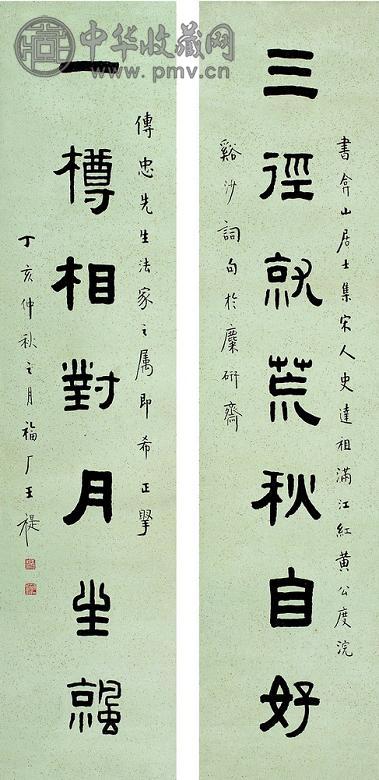 中华收藏网
www.pmv.cn
三徑就荒秋自好
書弇山居士集宋人史達祖滿江紅黃公度浣
谿沙詞句於麋研齋
一樽相對月生
傳忠先生法家之属即希正
丁亥仲秋之月福厂王禔